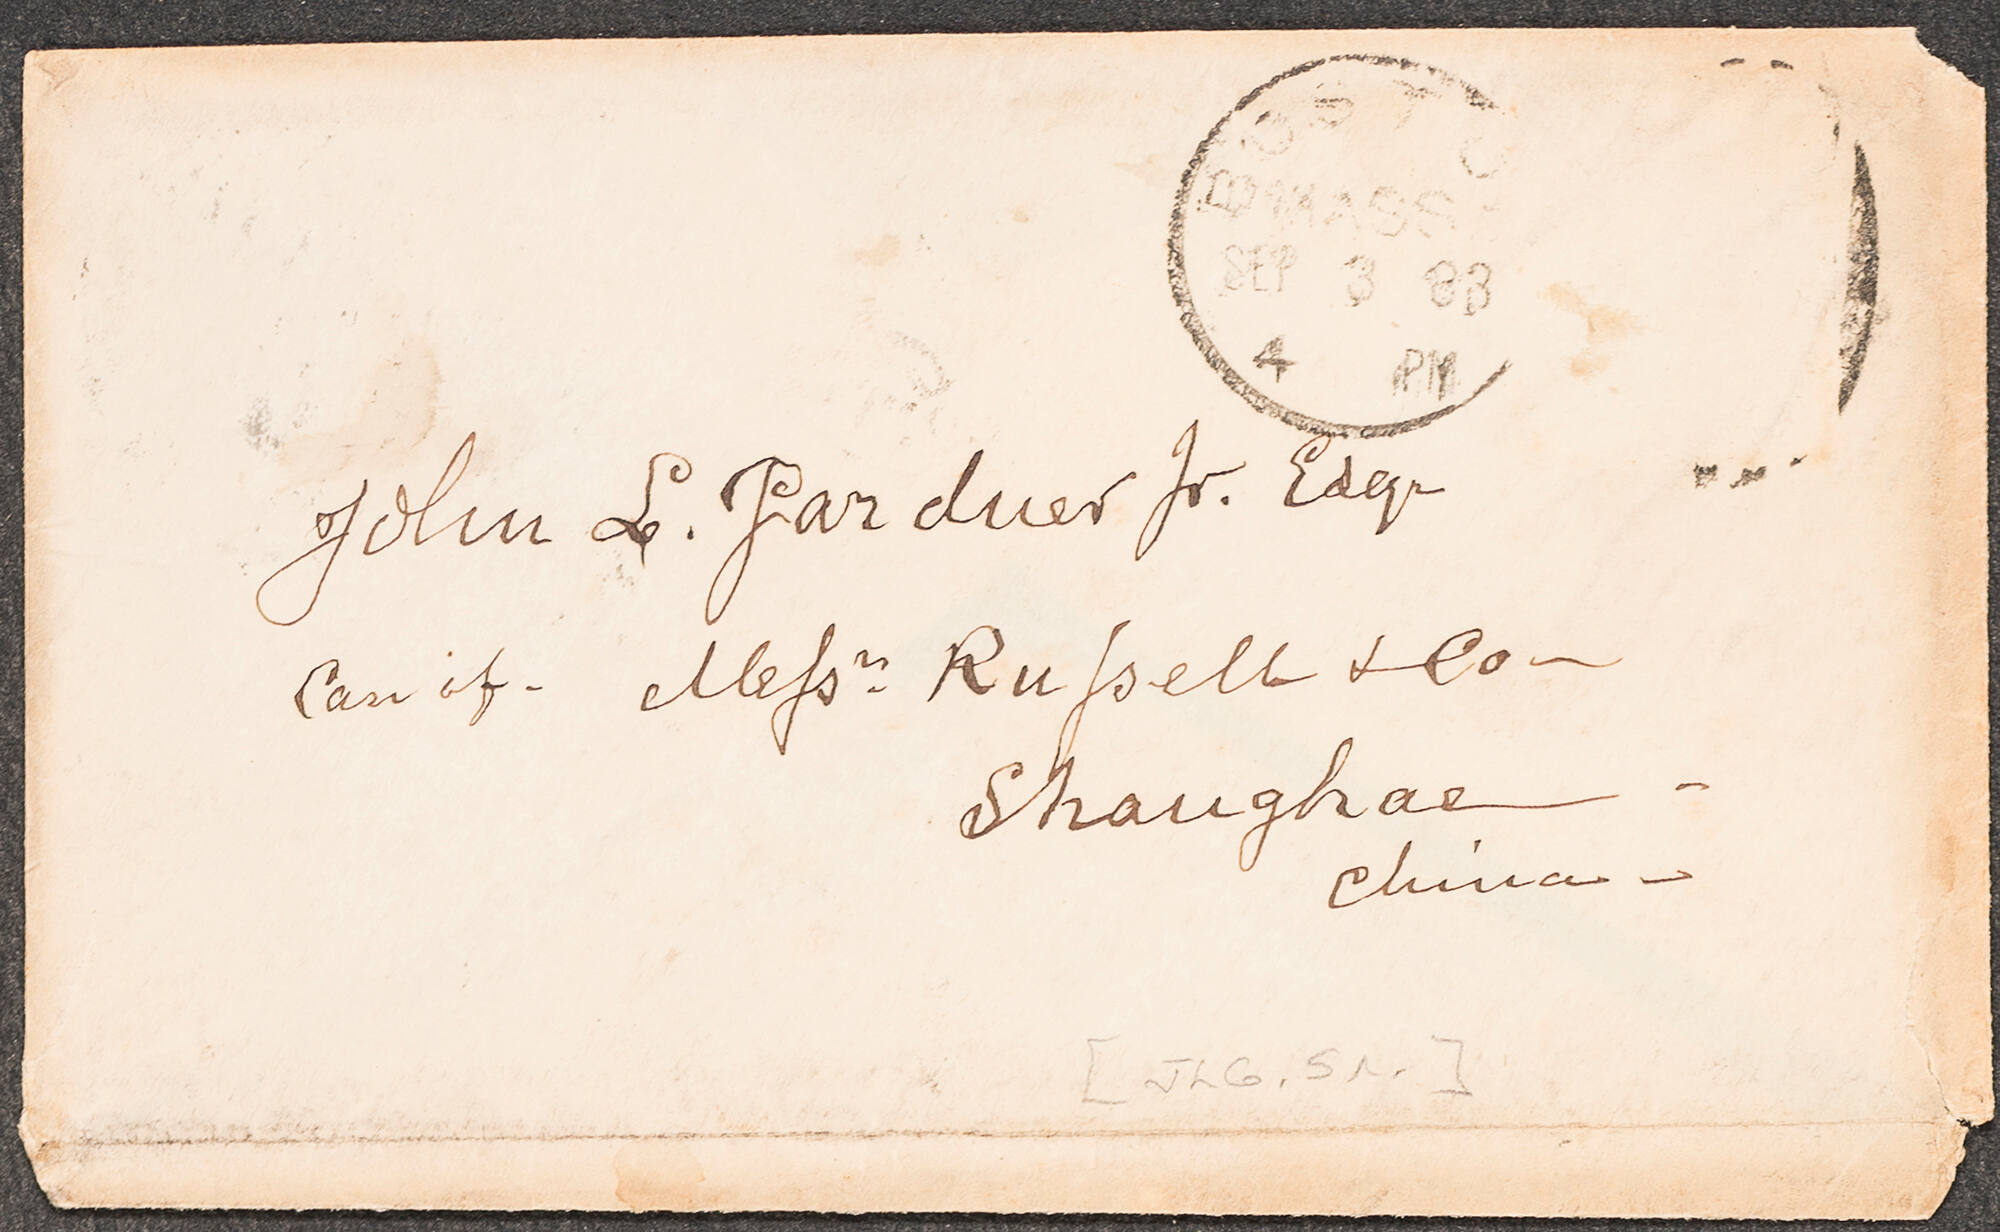 BOSTO
MASS.
SEP 3 83
4 PM
John L. Gardner Jr. Esqr
Care of - Messrs. Russell & Co -
Shanghae -
China -
[JLG. Sr.]